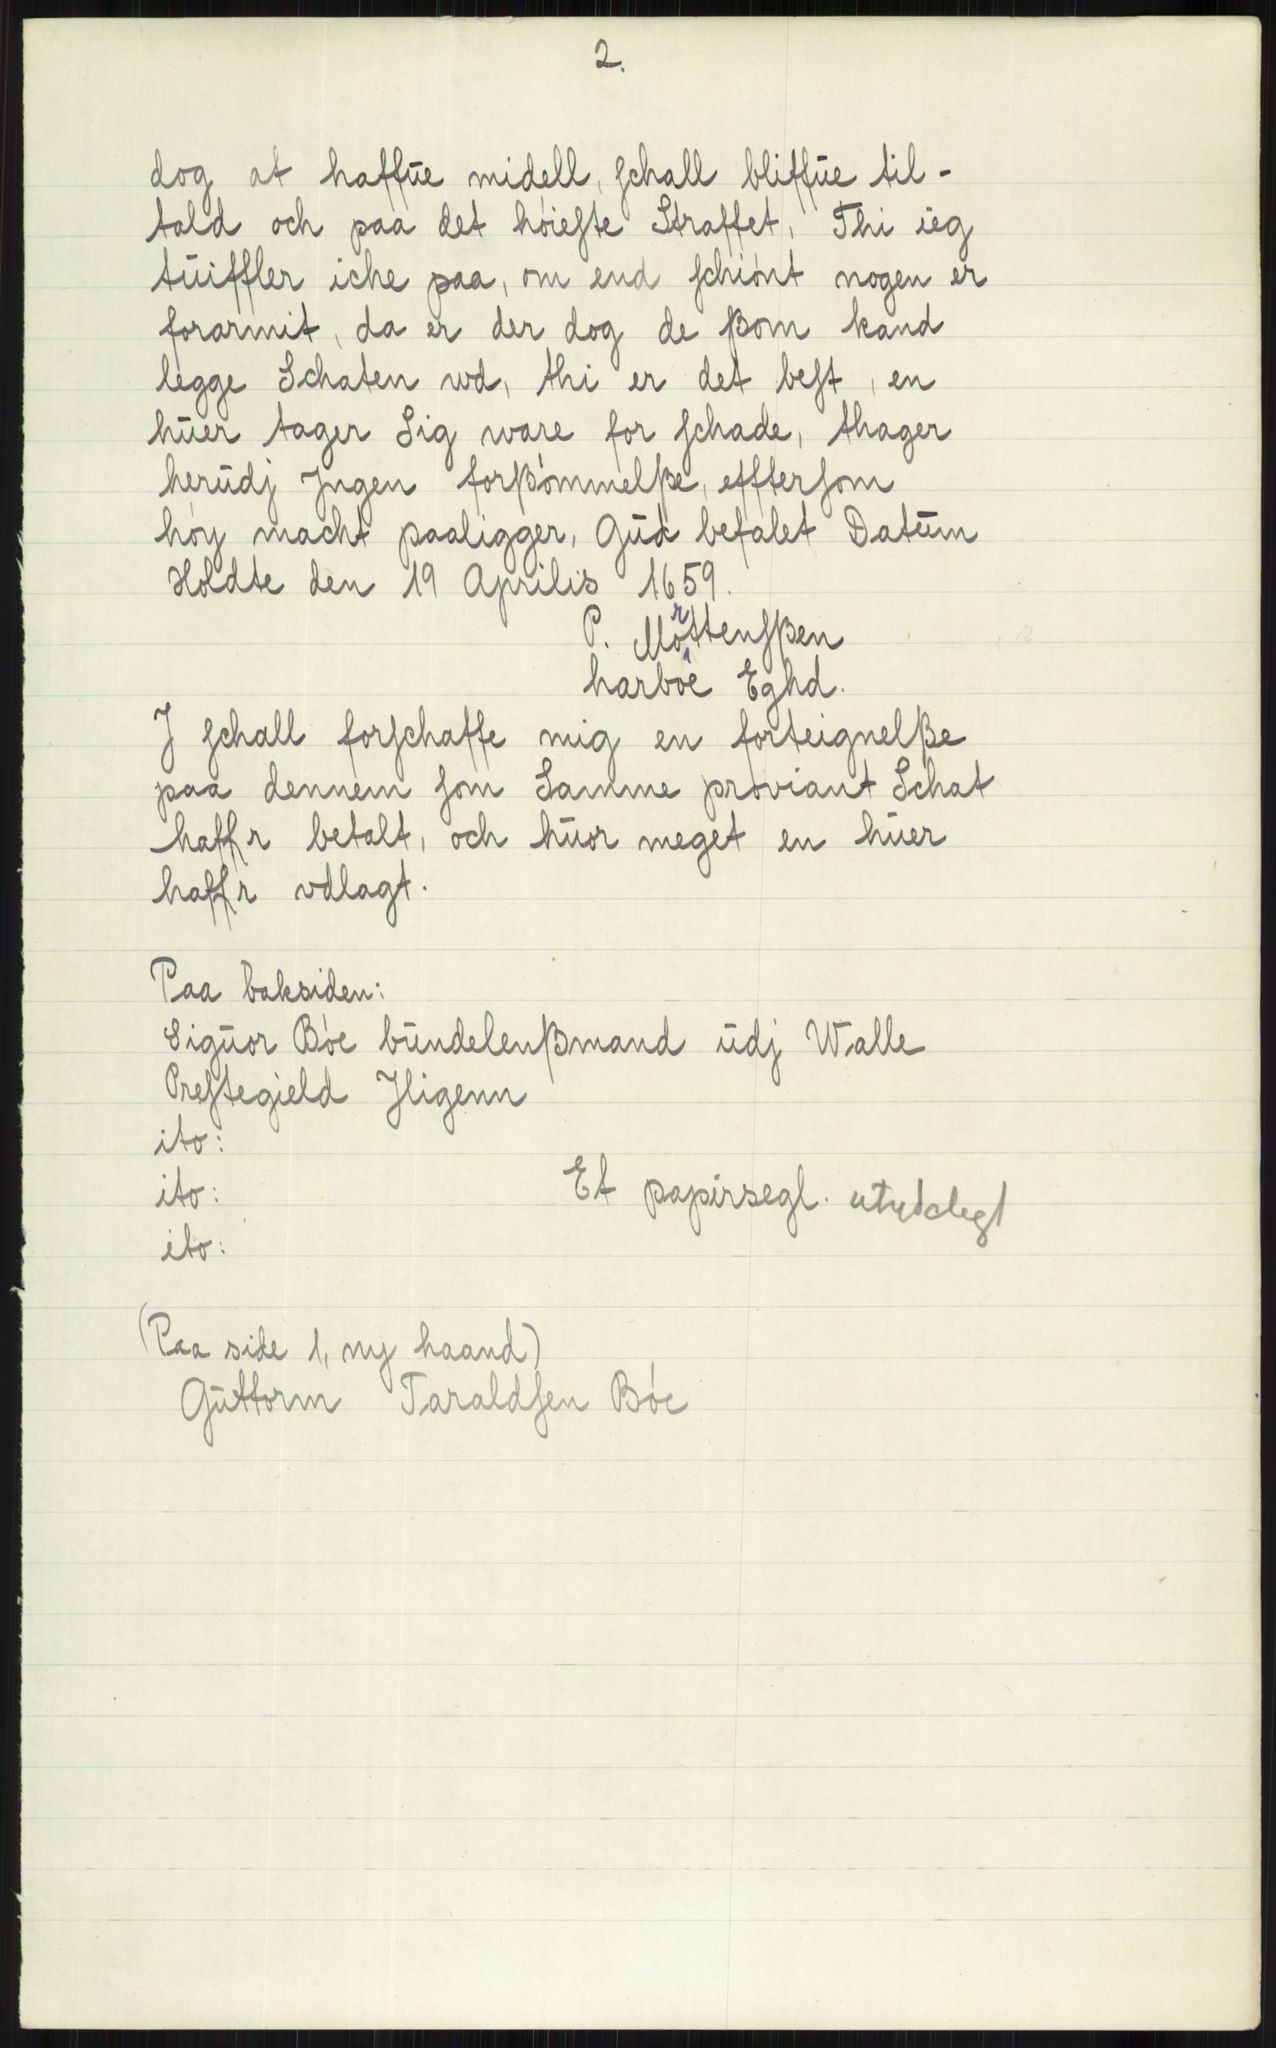 2.
dog at haffūe midell, ſchall bliffūe til-
tald och paa det høieſte Straffet, Thi ieg
tūiffler iche paa, om end ſchiønt nogen er
forarmit, da er der dog de ßom kand
legge Schaten wd, thi er det beſt, en
hūer tager Sig ware for ſchade, thager
herūdj Jngen forßømmelße, efftersom
høy macht paaligger, Gūd befalet Datūm
Holdte den 19 Aprilis 1659.
P. Mørttenſßen
harbôe Eghd.
J ſchall forſchaffe mig en forteignelße
paa dennem ſom Samme proviant Schat
haffr betalt, och hūor meget en hūer
haffr vdlagt.
Paa baksiden:
Sigūor Bøe būndelenßmand ūdj Walle
Preſtegield Jligenn
ito:
ito:
Et papirsegl. utydelegt
ito:
(Paa side 1, ny haand)
Gūttorm Taraldſen Bøe